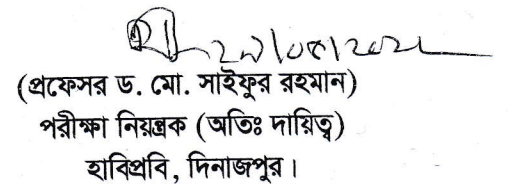 (প্রফেসর ড. মো. সাইফুর রহমান)
পরীক্ষা নিয়ন্ত্রক (অতিঃ দায়িত্ব)
হাবিপ্রবি, দিনাজপুর।